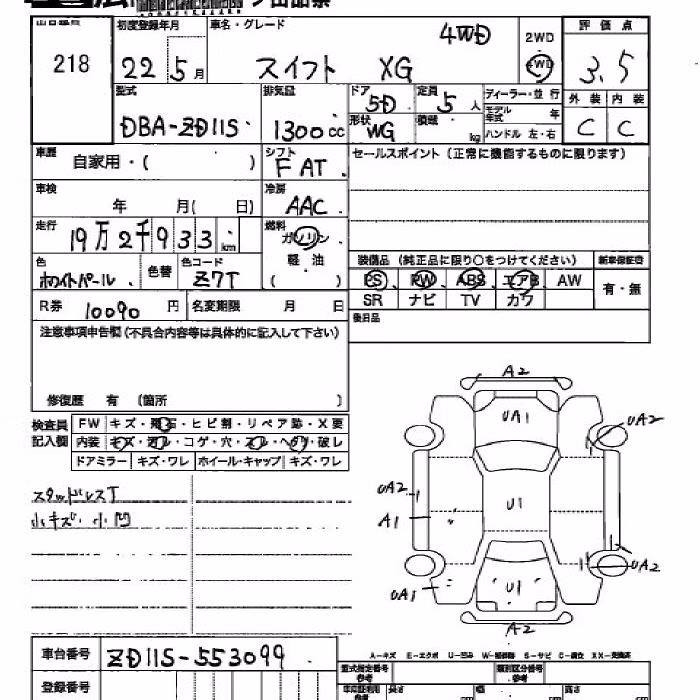 出品票
出品番号 初度登録年月 車名・グレード 4WD 2WD 評価点
218 22 5月 スイフト XG 4WD 3.5
型式 排気量 ドア 5D 定員 5人 ディーラー・並行 外装 内装
DBA-ZD11S 1300cc 形状 WG 積載 kg モデル年式 年 C C
ハンドル 左・右
車歴 自家用・( ) シフト FAT セールスポイント(正常に機能するものに限ります)
車検 年 月( 日) 冷房 AAC
走行 19万2千933km 燃料 ガソリン
軽油
( )
色 ホワイトパール 色替 色コード Z7T 装備品(純正品に限り○をつけてください) 新車保証書
PS、PW、ABS、エアB、AW 有・無
SR ナビ TV カワ
R券 10090円 名変期限 月 日 後日品
注意事項申告欄(不具合内容等は具体的に記入して下さい)
修復歴 有 (箇所 )
検査員記入欄 FW キズ・飛石・ヒビ割・リペア跡・X要
内装 キズ・汚レ・コゲ・穴・スレ・ヘタリ・破レ
ドアミラー キズ・ワレ ホイール・キャップ キズ・ワレ
スタッドレスT
小キズ・小凹
A2
UA1
UA2
UA2
U1
A1
UA2
UA1
U1
A2
A-キズ E-エクボ U-凹み W-補修跡 S-サビ C-腐食 XX-交換済
車台番号 ZD11S-553099
登録番号
型式指定番号 類別区分番号
長さ cm 幅 cm 高さ cm